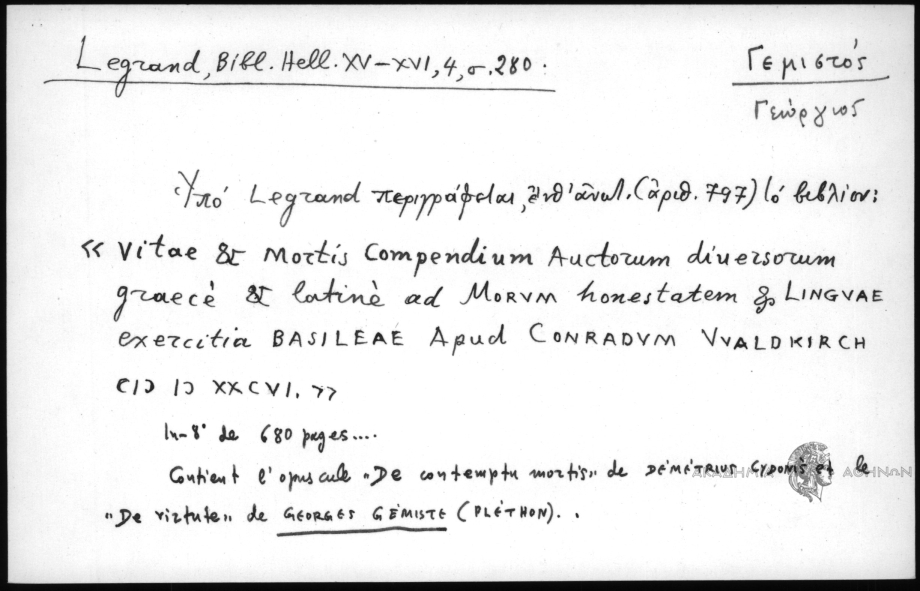 Legrand, Bibl. Hell. XV–XVI, 4, σ. 280.
Γεμιστός
Γεώργιος
Ὑπό Legrand περιγράφεται, (ἀριθ. 797) τό βιβλίον:
« Vitae & Mortis Compendium Auctorum diversorum
graecè & latinè ad MORVM honestatem & LINGVAE
exercitia BASILEAE Apud CONRADVM VVALDKIRCH
CIƆ IƆ XXCVI. »
In-8° de 680 pages....
Contient l'opuscule "De contemptu mortis" de DÉMÉTRIUS CYDONÈS et le
"De virtute" de GEORGES GÉMISTE (PLÉTHON). .
ΑΚΑΔΗΜΙΑ ΑΘΗΝΩΝ